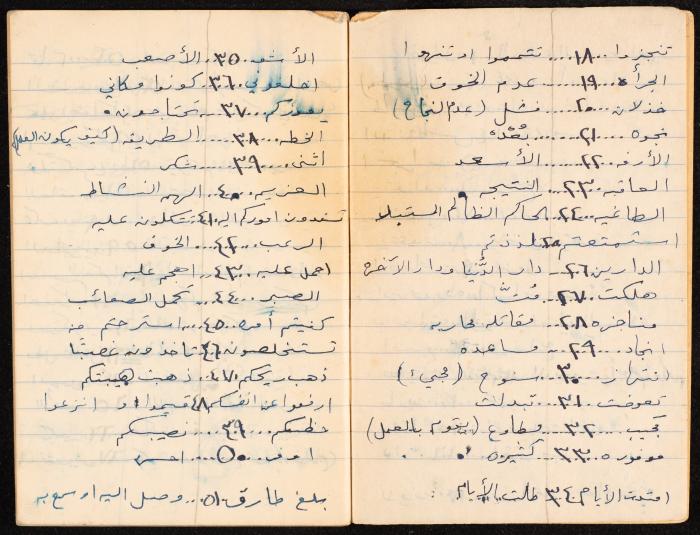 تنجزوا ..١٨.... تتمموا او تنهوا
الجرأه ..١٩.... عدم الخوف
خذلان ..٢٠.... فشل (عدم النجاح)
نجوه ..٢١.... بُعْدَه
الأرفه ..٢٢.... الأسعد
العاقبه ..٢٣... النتيجه
الطاغيه ..٢٤... الحاكم الظالم المستبد
استمتعتم ٢٥ تلذذتم
الدارين ..٢٦.. دار الدُّنيا ودار الآخره
هلكت ..٢٧.. مُتَّ
مناخزه ..٢٨.. مقاتله محاربه
انجاد ..٢٩.. مساعده
انتهاز ..٣٠.. سنوح (مجيء)
تعوضت ..٣١.. تبدلت
مجيب ..٣٢.. مطاوع (يقوم بالعمل)
موفوره ..٣٣.. كثيره
امتدت الأيام ٣٤ طالت الأيام
الأشق ..٣٥.. الأصعب
احلفوني ..٣٦. كونوا مكاني
يعوزكم ..٣٧.. تحتاجونه
الخطه ..٣٨.. الطريقه (كيف يكون العمل)
اثنى ..٣٩... شكر
العزيمه ..٤٠.. الهمه النشاط
تسندون اموركم اليه ٤١ تتكلون عليه
الرعب ..٤٢.. الخوف
احمل عليه ..٤٣.. اهجم عليه
الصبر ..٤٤.. تحمل الصعائب
كفيتم أمره ..٤٥.. استرحتم منه
تستخلصون ٤٦ تأخذونه غصبًا
ذهب ريحكم ٤٧.. ذهبت هيبتكم
ارفعوا عن انفسكم ٤٨ قيموا او انزعوا
حظكم ..٤٩.. نصيبكم
اوفى ..٥٠.. احسن
بلغ طارق ..٥١.. وصل اليه او سمع به